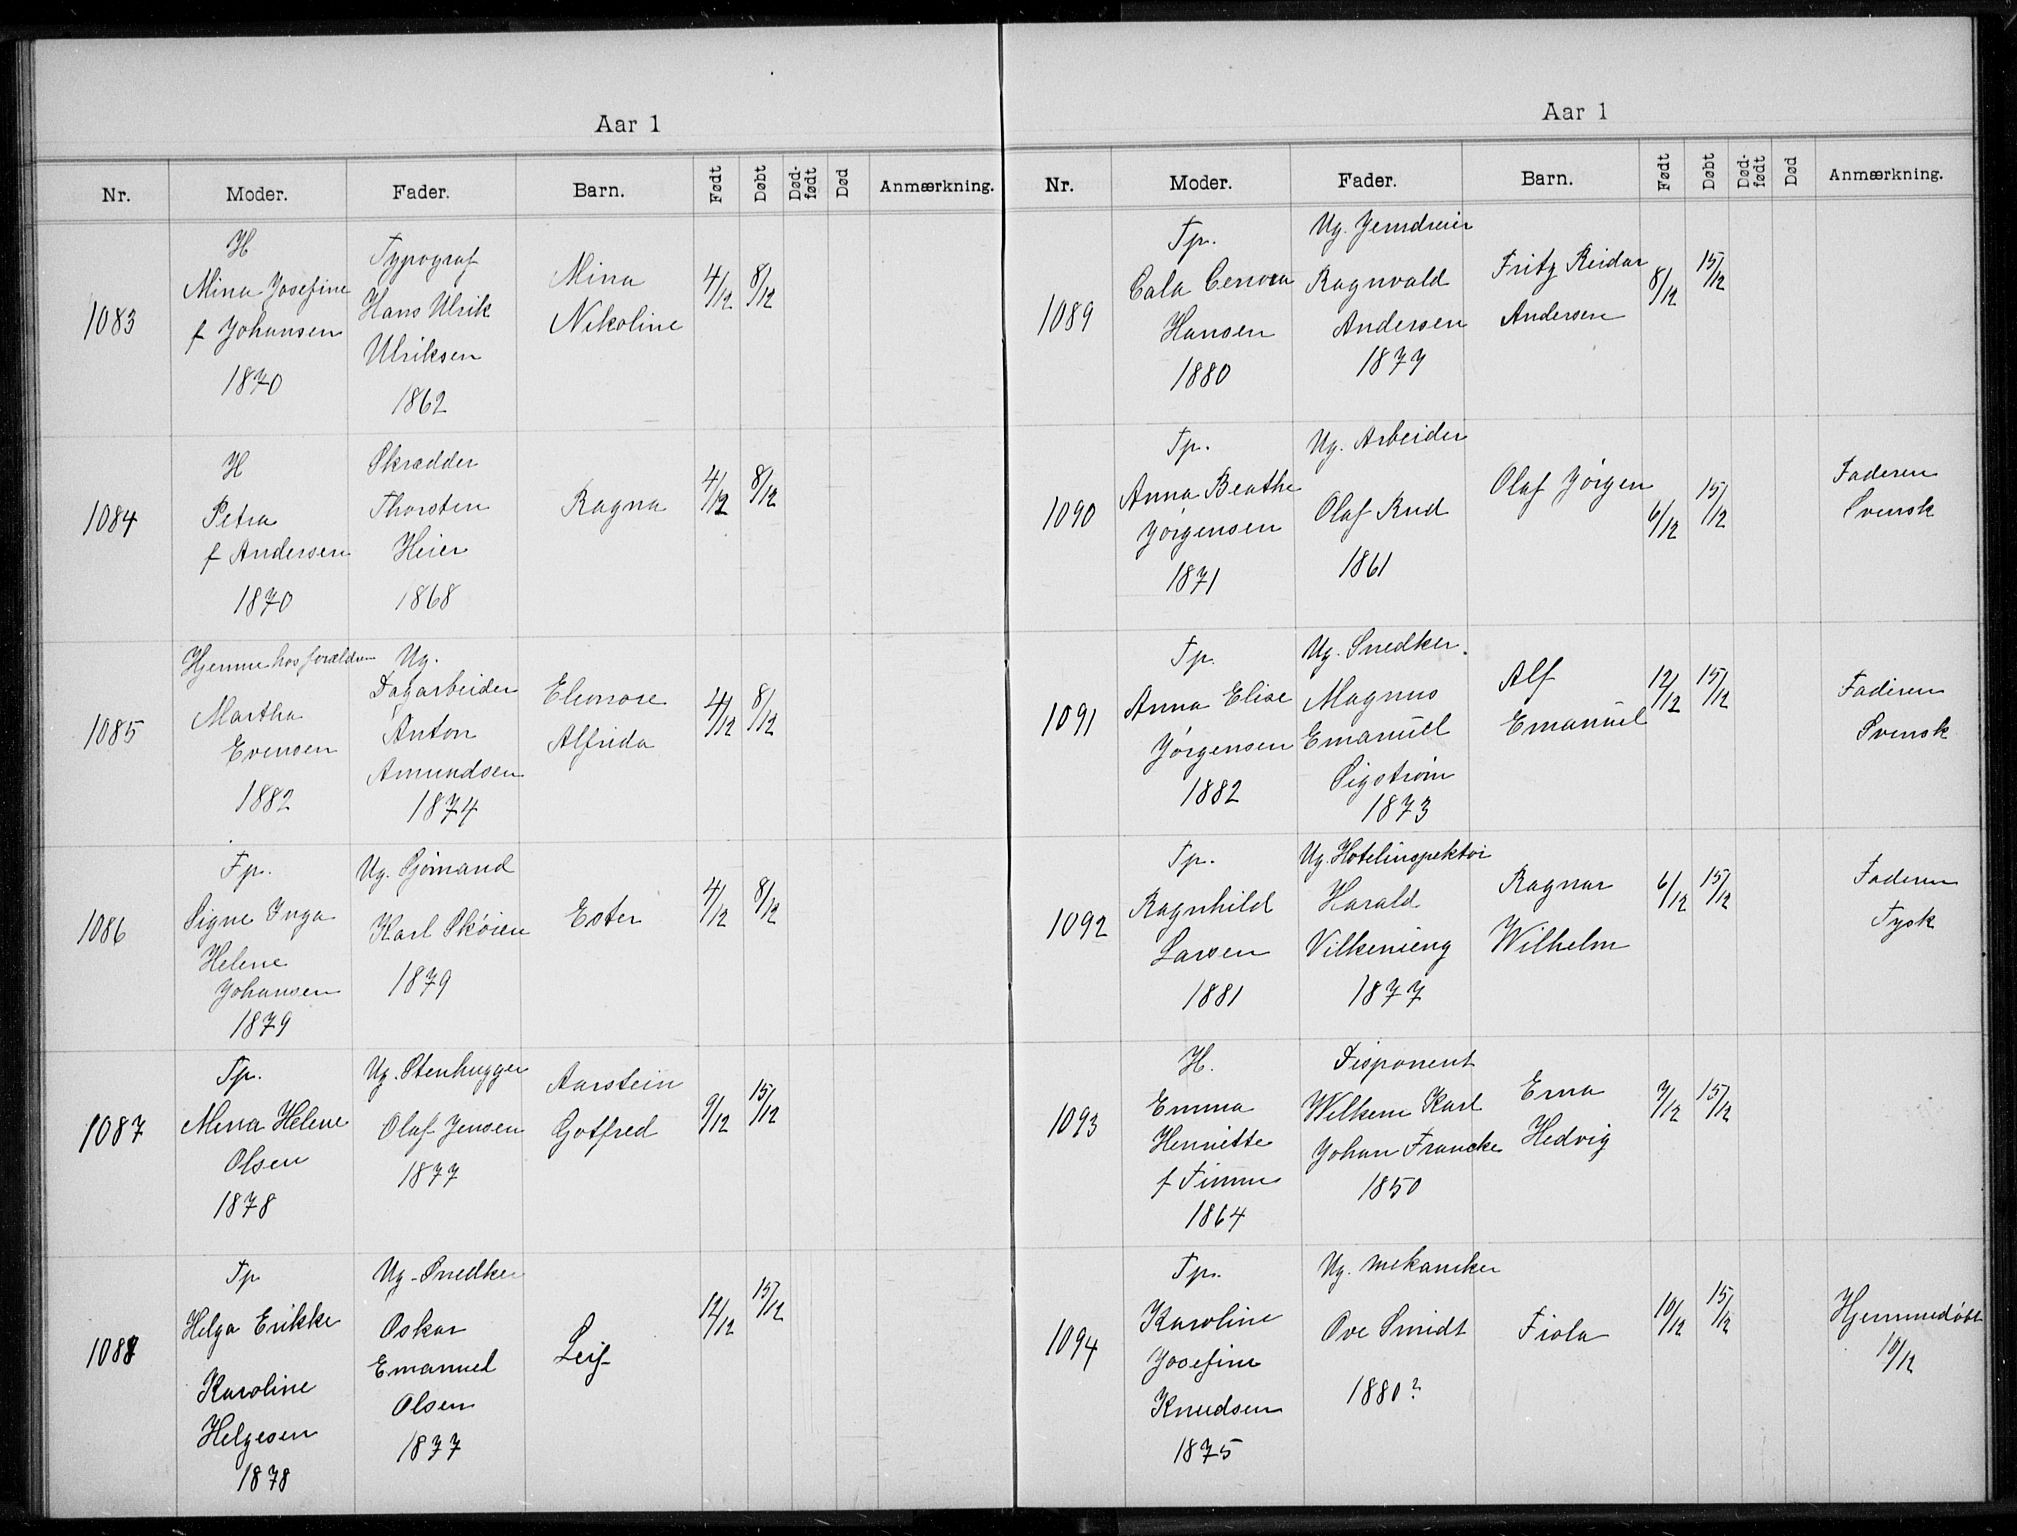 Aar 1
Nr. Moder. Fader. Barn. Født Døbt Død-født Død Anmærkning.
1083
H
Mina Josefine
f Johansen
1870
Typograf
Hans Ulrik
Ulriksen
1862
Mina
Nikoline
4/12 8/12
1084
H
Petra
f Andersen
1870
Skrædder
Thorsten
Heier
1868
Ragna
4/12 8/12
1085
Hjemme hos forældren
Martha
Evensen
1882
Ug.
Dagarbeider
Anton
Amundsen
1874
Eleonore
Alfrida
4/12 8/12
1086
Tp.
Signe Inga
Helene
Johansen
1879
Ug. Sjømand
Karl Skøien
1879
Ester
4/12 8/12
1087
Tp.
Mina Helene
Olsen
1878
Ug. Stenhugger
Olaf Jensen
1877
Aarstein
Gotfred
9/12 15/12
1088
Tp
Helga Erikke
Karoline
Helgesen
1878
Ug. Snedker
Oskar
Emanuel
Olsen
1877
Leif
12/12 15/12
Aar 1
Nr. Moder. Fader. Barn. Født Døbt Død-født Død Anmærkning.
1089
Tp.
Hansen
1880
Ug. Jerndreier
Ragnvald
Andersen
1877
Fritz Reidar
Andersen
8/12 15/12
1090
Tp.
Anna Beathe
Jørgensen
1871
Ug. Arbeider
Olaf Rud
1861
Olaf Jørgen
6/12 15/12
Faderen
Svensk
1091
Tp.
Anna Elise
Jørgensen
1882
Ug. Snedker.
Magnus
Emanuel
Sigstrøm
1873
Alf
Emanuel
12/12 15/12
Faderen
Svensk
1092
Tp.
Ragnhild
Larsen
1881
Ug. Hotelinspektør
Harald
Vilkenieng
1877
Ragnar
Wilhelm
6/12 15/12
Faderen
Tysk
1093
H.
Emma
Henriette
f Timme
1864
Disponent
Wilhem Karl
Johan Francke
1850
Erna
Hedvig
7/12 15/12
1094
Tp.
Karoline
Josefine
Knudsen
1875
Ug. mekaniker
Ove Smidt
1880?
Fiola
10/12 15/12
Hjemmedøbt
10/12